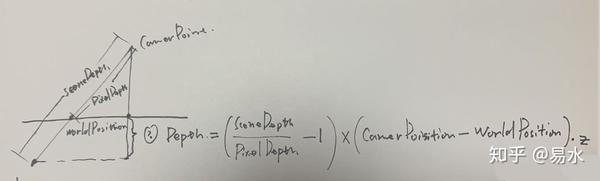 CamerPoinre.
SceneDepth.
PixelDepth
WorldPosition
② Depth. = (SceneDepth / PixelDepth. - 1) × (CamerPoisition - WorldPosition).z
知乎 @易水